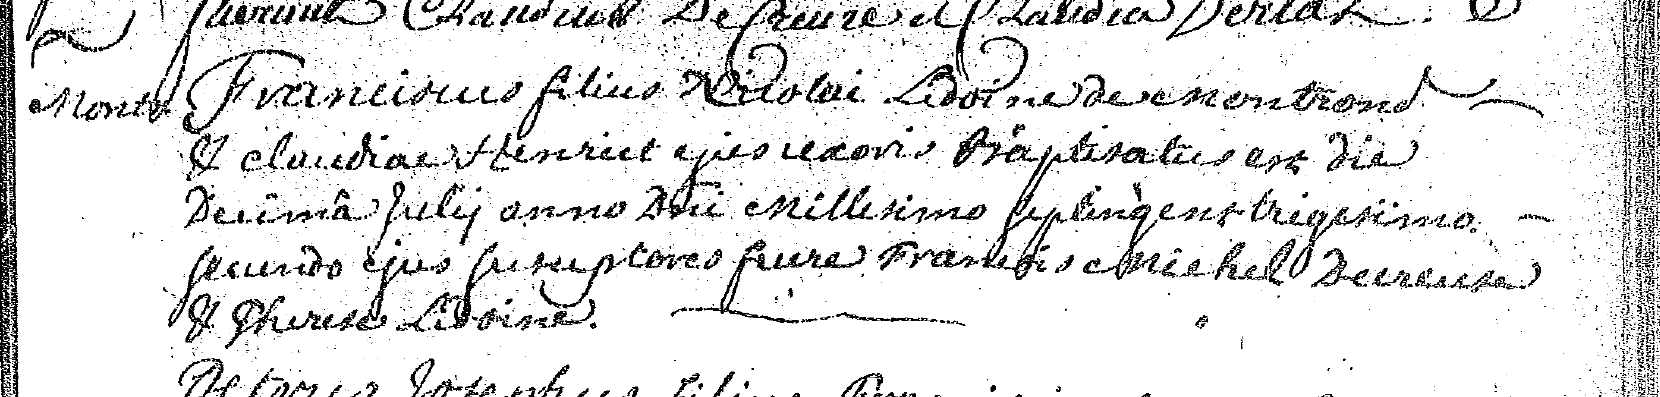 fuerunt Claudius De Creuze et Claudia
Montr. Franciscus filius Nicolai Lidoine de Montrond
& claudiae Henriet ejus uxoris Baptisatus est die
Decimâ Julij anno Dni Millesimo septingent trigesimo.
secundo ejus susceptores fuere Francois Michel Decreuse
& Therese Lidoine.
Josephus filius